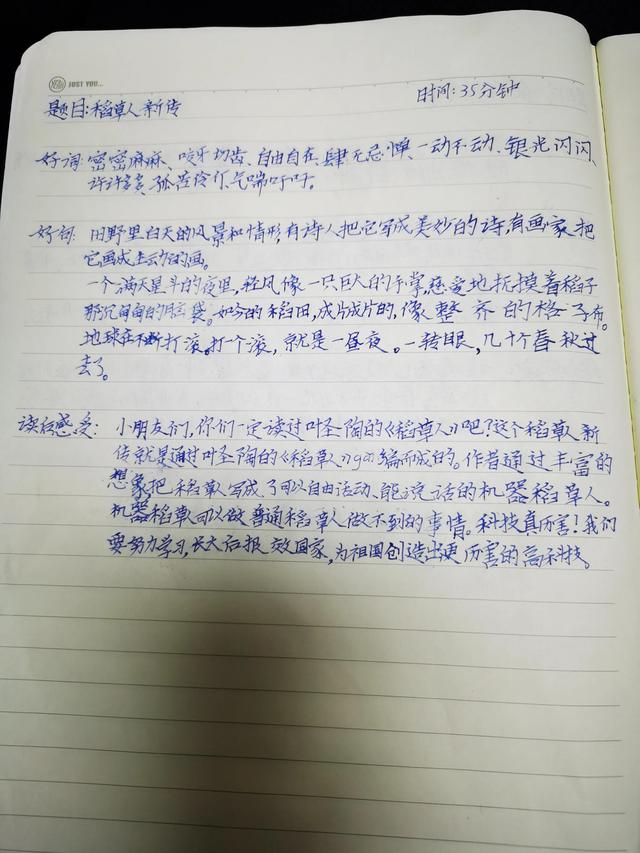 JUST YOU...
题目:稻草人新传 时间:35分钟
好词:密密麻麻、咬牙切齿、自由自在、肆无忌惮、一动不动、银光闪闪、
许许多多、孤苦伶仃、气喘吁吁。
好词:田野里白天的风景和情形,有诗人把它写成美妙的诗,有画家把
它画成生动的画。
一个满天星斗的夜里,轻风像一只巨大的手掌,慈爱地抚摸着稻子
那沉甸甸的脑袋。如今的稻田,成片成片的,像整齐的格子布。
地球在不断打滚。打个滚,就是一昼夜。一转眼,几十个春秋过
去了。
读后感受:小朋友们,你们一定读过叶圣陶的《稻草人》吧?这个稻草人新
传就是通过叶圣陶的《稻草人》gai编而成的。作者通过丰富的
想象把稻草人写成了可以自由活动、能说话的机器稻草人。
机器稻草可以做普通稻草人做不到的事情。科技真厉害!我们
要努力学习,长大后报效国家,为祖国创造出更厉害的高科技。